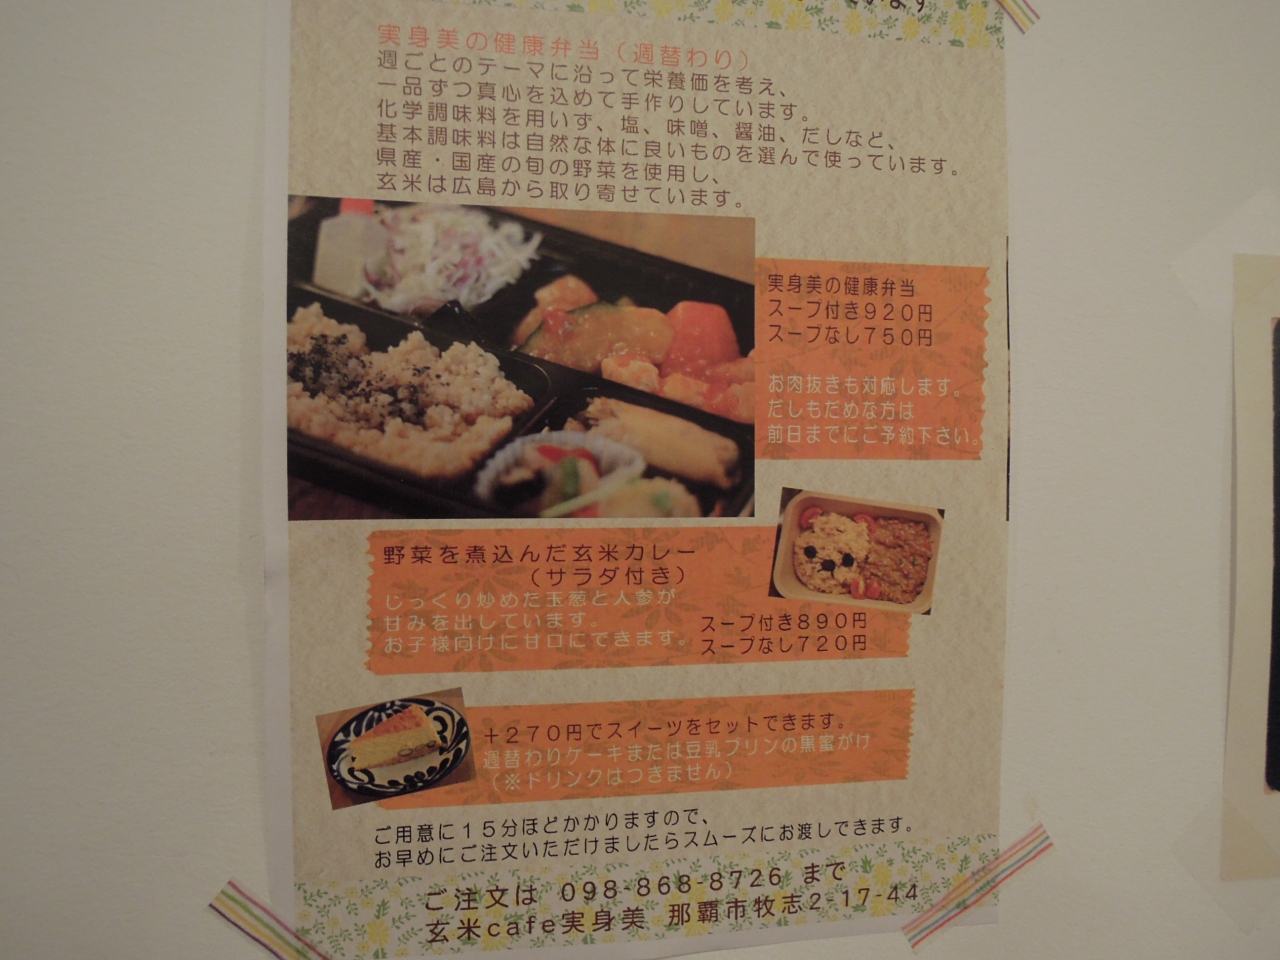 います
実身美の健康弁当（週替わり）
週ごとのテーマに沿って栄養価を考え、
一品ずつ真心を込めて手作りしています。
化学調味料を用いず、塩、味噌、醤油、だしなど、
基本調味料は自然な体に良いものを選んで使っています。
県産・国産の旬の野菜を使用し、
玄米は広島から取り寄せています。
実身美の健康弁当
スープ付き920円
スープなし750円
お肉抜きも対応します。
だしもだめな方は
前日までにご予約下さい。
野菜を煮込んだ玄米カレー
（サラダ付き）
じっくり炒めた玉葱と人参が
甘みを出しています。
お子様向けに甘口にできます。
スープ付き890円
スープなし720円
＋270円でスイーツをセットできます。
週替わりケーキまたは豆乳プリンの黒蜜がけ
（※ドリンクはつきません）
ご用意に15分ほどかかりますので、
お早めにご注文いただけましたらスムーズにお渡しできます。
ご注文は 098-868-8726 まで
玄米cafe実身美 那覇市牧志2-17-44